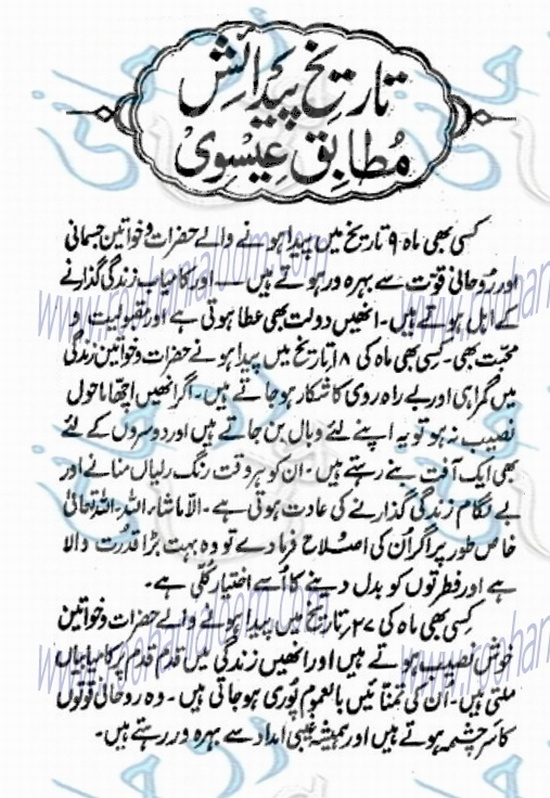 تاریخ پیدائش
مطابق عیسوی
کسی بھی ماہ ۹ تاریخ میں پیدا ہونے والے حضرات و خواتین جسمانی
اور روحانی قوت سے بہرہ ور ہوتے ہیں — اور کامیاب زندگی گذارنے
کے اہل ہوتے ہیں۔ انھیں دولت بھی عطا ہوتی ہے اور مقبولیت و
محبت بھی۔ کسی بھی ماہ کی ۱۸ تاریخ میں پیدا ہونے حضرات و خواتین زندگی
میں گمراہی اور بے راہ روی کا شکار ہو جاتے ہیں۔ اگر انھیں اچھا ماحول
نصیب نہ ہو تو یہ اپنے لئے وبال بن جاتے ہیں اور دوسروں کے لئے
بھی ایک آفت بنے رہتے ہیں۔ ان کو ہر وقت رنگ رلیاں منانے اور
بے لگام زندگی گذارنے کی عادت ہوتی ہے۔ الا ماشاء اللہ۔ اللہ تعالیٰ
خاص طور پر اگر ان کی اصلاح فرما دے تو وہ بہت بڑا قدرت والا
ہے اور فطرتوں کو بدل دینے کا اُسے اختیار کلّی ہے۔
کسی بھی ماہ کی ۲۷ تاریخ میں پیدا ہونے والے حضرات و خواتین
خوش نصیب ہوتے ہیں اور انھیں زندگی میں قدم قدم پر کامیابیاں
ملتی ہیں۔ اُن کی تمنائیں بالعموم پوری ہو جاتی ہیں۔ وہ روحانی قوتوں
کا سرچشمہ ہوتے ہیں اور ہمیشہ غیبی امداد سے بہرہ ور رہتے ہیں۔